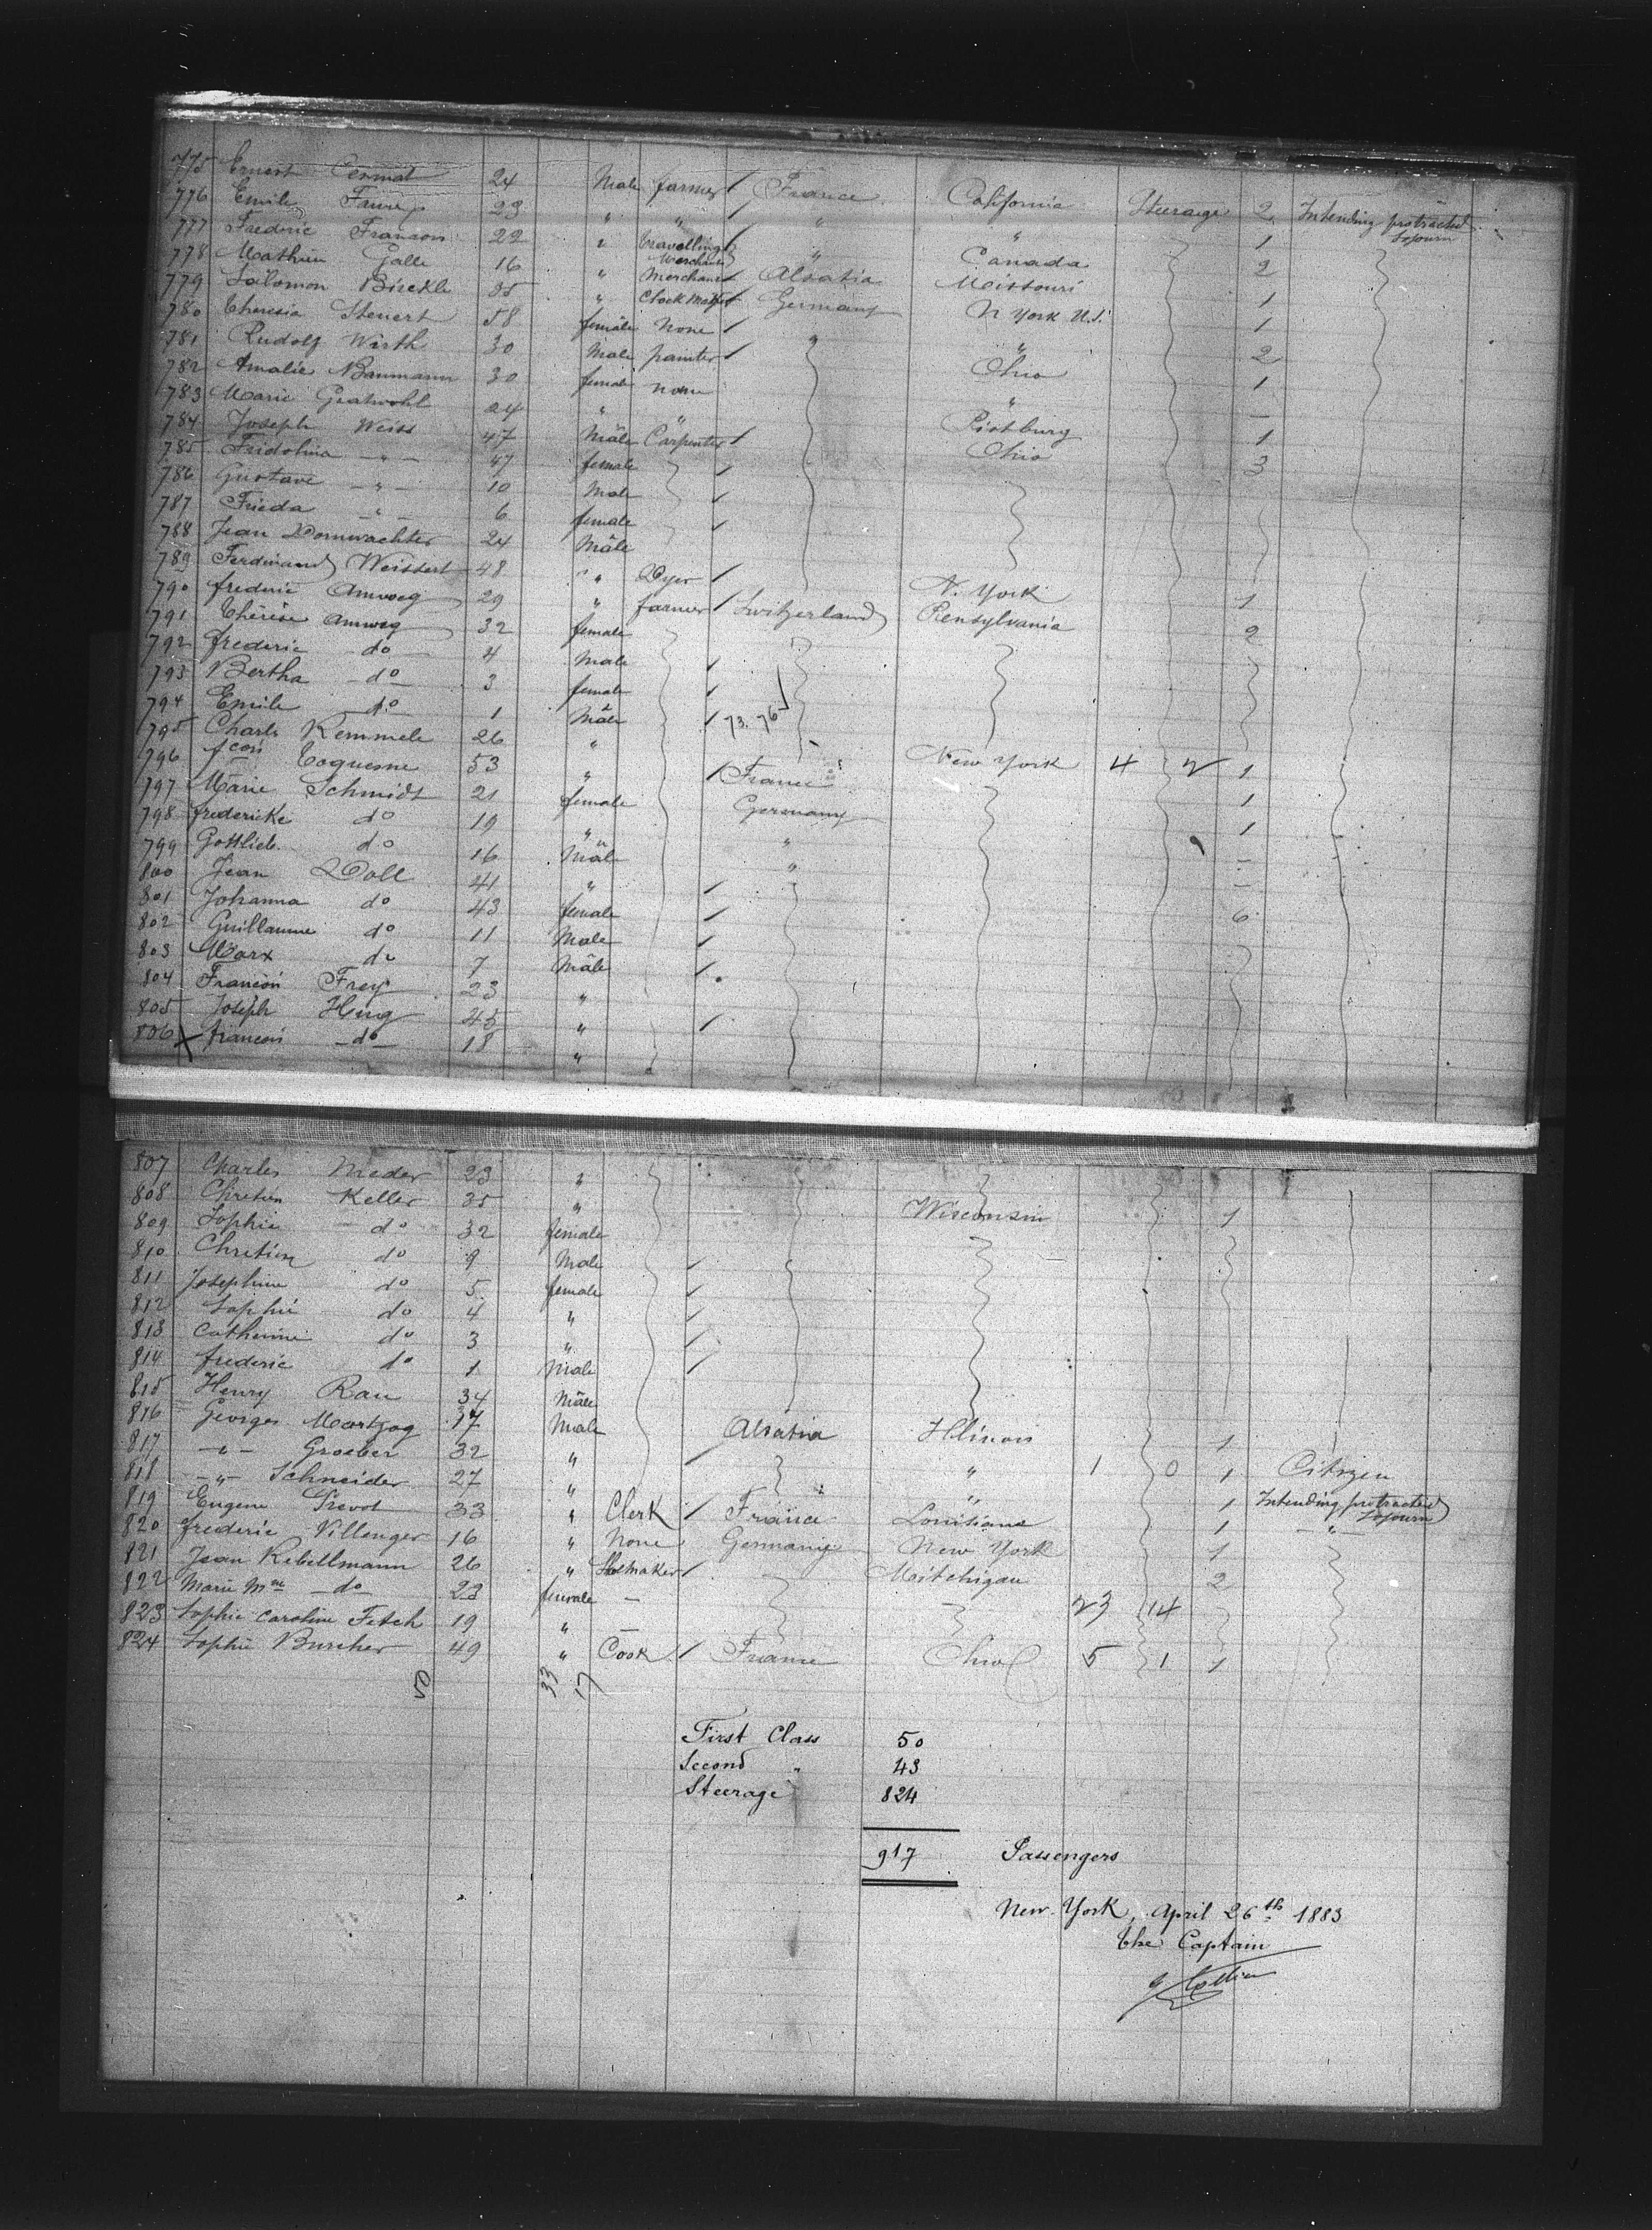 775 Ernest Cermat 24 Male farmer / France California Steerage 2 Intending protracted Sojourn
776 Emile Faure 23 " " / " " 1
777 Frederic Francon 22 " travelling Merchand / " Canada 2
778 Mathieu Galle 16 " Merchand / Alsatia Missouri 1
779 Salomon Bickle 35 " Clock Maker / Germany N York U.S. 1
780 Theresia Steuert 58 female None / " " 2
781 Rudolf Wirth 30 Male painter / Ohio 1
782 Amalie Baumann 30 female none " -
783 Marie Gratwohl 24 " " Pistburg 1
784 Joseph Weiss 47 Mâle Carpenter / Ohio 3
785 Fridolina - " - 47 female /
786 Gustave - " - 10 Male /
787 Frieda - " - 6 female /
788 Jean Dornwachter 24 Mâle
789 Ferdinand Weissert 48 " Dyer / N. York 1
790 frederic Amweg 29 " farmer / Switzerland Pensylvania 2
791 Thérèse Amweg 32 female
792 frederic do 4 Male /
793 Bertha do 3 female /
794 Emile do 1 Mâle / 73.76
795 Charles Kemmele 26 "
796 fcois Coquesne 53 " / France New York 4 2 1
797 Marie Schmidt 21 female Germany 1
798 fredericke do 19 " " 1
799 Gottlieb do 16 Mâle " -
800 Jean Doll 41 " / -
801 Johanna do 43 female / 6
802 Guillaume do 11 Male /
803 Marx do 7 Mâle /
804 Francois Frey 23 "
805 Joseph Hug 45 " /
806 x francois do 18 "
807 Charles Meder 23 "
808 Chretien Keller 35 " Wisconsin 1
809 Sophie do 32 female
810 Chretien do 9 Male /
811 Josephine do 5 female /
812 Sophie do 4 " /
813 Catherine do 3 " /
814 frederic do 1 Male /
815 Henry Rau 34 Mâle
816 Georges Martzog 17 Male / Alsatia Illinois 1
817 - " - Groeber 32 " " 1 0 1 Citizen
818 - " - Schneider 27 " " 1 Intending protracted Sojourn
819 Eugene Prevot 33 " Clerk / France Louisiana 1 - " -
820 frederic Villenger 16 " None Germany New York 1
821 Jean Rebellmann 26 " Shoemaker / Mitchigan 2
822 Marie Mme do 23 female - 23 14
823 Sophie Caroline Fetch 19 "
824 Sophie Burcher 49 " Cook / France Ohio 5 1 1
50 33 17
First Class 50
Second " 43
Steerage 824
917 Passengers
New-York, April 26th 1883
The Captain